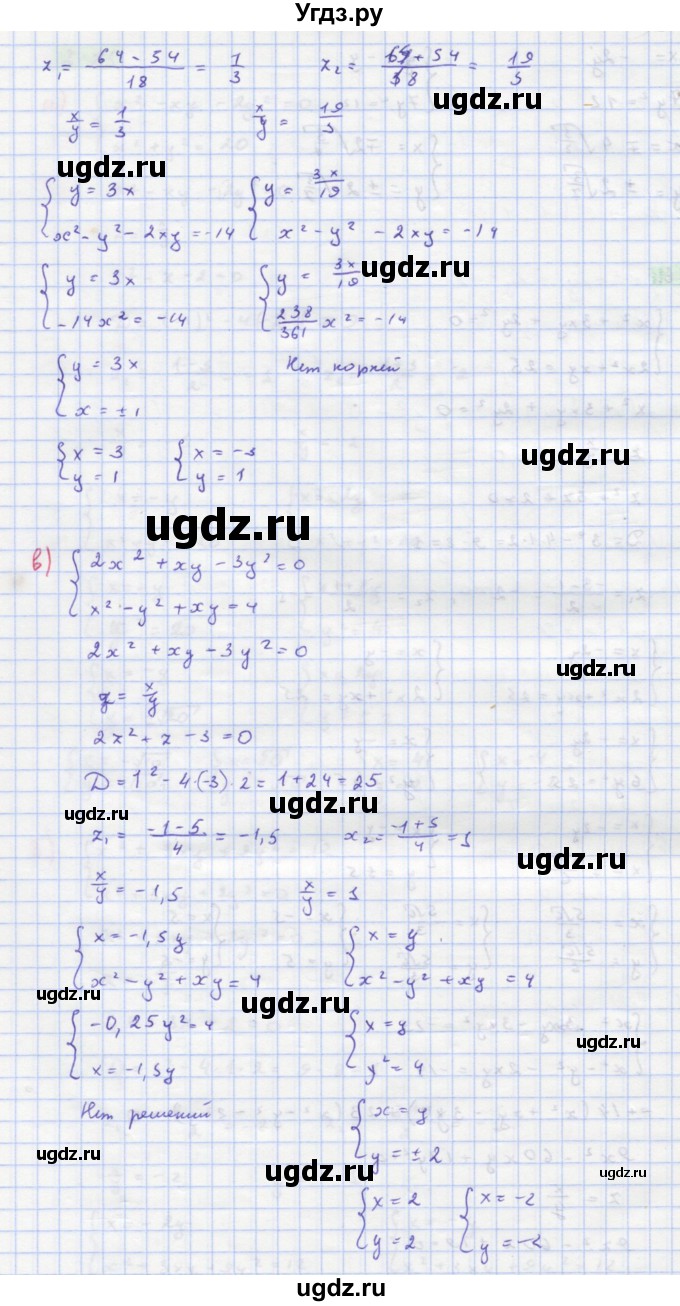 Угдз.ру
z₁ = (64 - 54)/18 = 1/3    z₂ = (64 + 54)/18 = 19/3
ugdz.ru
x/y = 1/3    x/y = 19/3
ugdz.ru
{ y = 3x    { y = 3x/19
x² - y² - 2xy = -14    x² - y² - 2xy = -14
{ y = 3x    { y = 3x/19
ugdz.ru
-14x² = -14    238/361 x² = -14
{ y = 3x    Нет корней
x = ±1
{ x = 3    { x = -3
y = 1    y = 1
ugdz.ru
ugdz.ru
в) { 2x² + xy - 3y² = 0
x² - y² + xy = 4
2x² + xy - 3y² = 0
ugdz.ru
z = x/y
2z² + z - 3 = 0
D = 1² - 4·(-3)·2 = 1 + 24 = 25
ugdz.ru
ugdz.ru
z₁ = (-1-5)/4 = -1,5    x₂ = (-1+5)/4 = 1
ugdz.ru
x/y = -1,5    x/y = 1
{ x = -1,5y    { x = y
x² - y² + xy = 4    x² - y² + xy = 4
ugdz.ru
ugdz.ru
{ -0,25y² = 4    { x = y
ugdz.ru
x = -1,5y    y² = 4
Нет решений    { x = y
ugdz.ru
y = ±2
ugdz.ru
ugdz.ru
{ x = 2    { x = -2
y = 2    y = -2
ugdz.ru